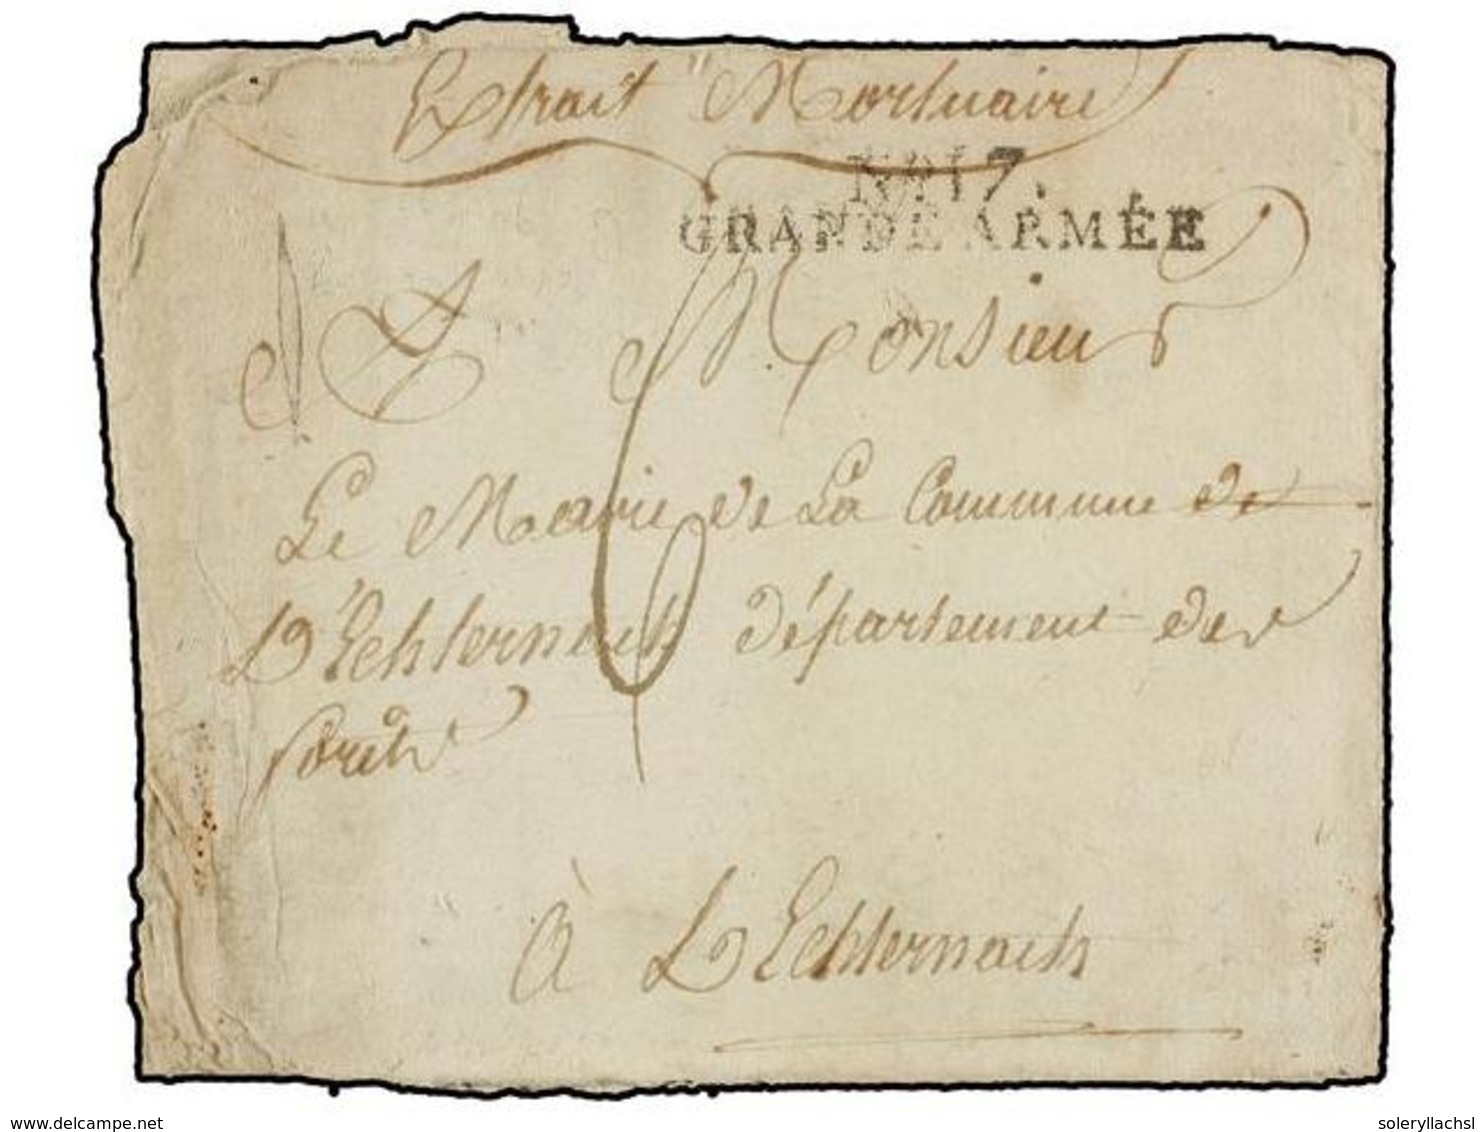 Extrait Mortuaire
No.17.
GRANDE ARMÉE
A Monsieur
Le Maire de La Commune de
L'Echternach département des
forêts
à L'Echternach
www.delcampe.net
soleryllachsl